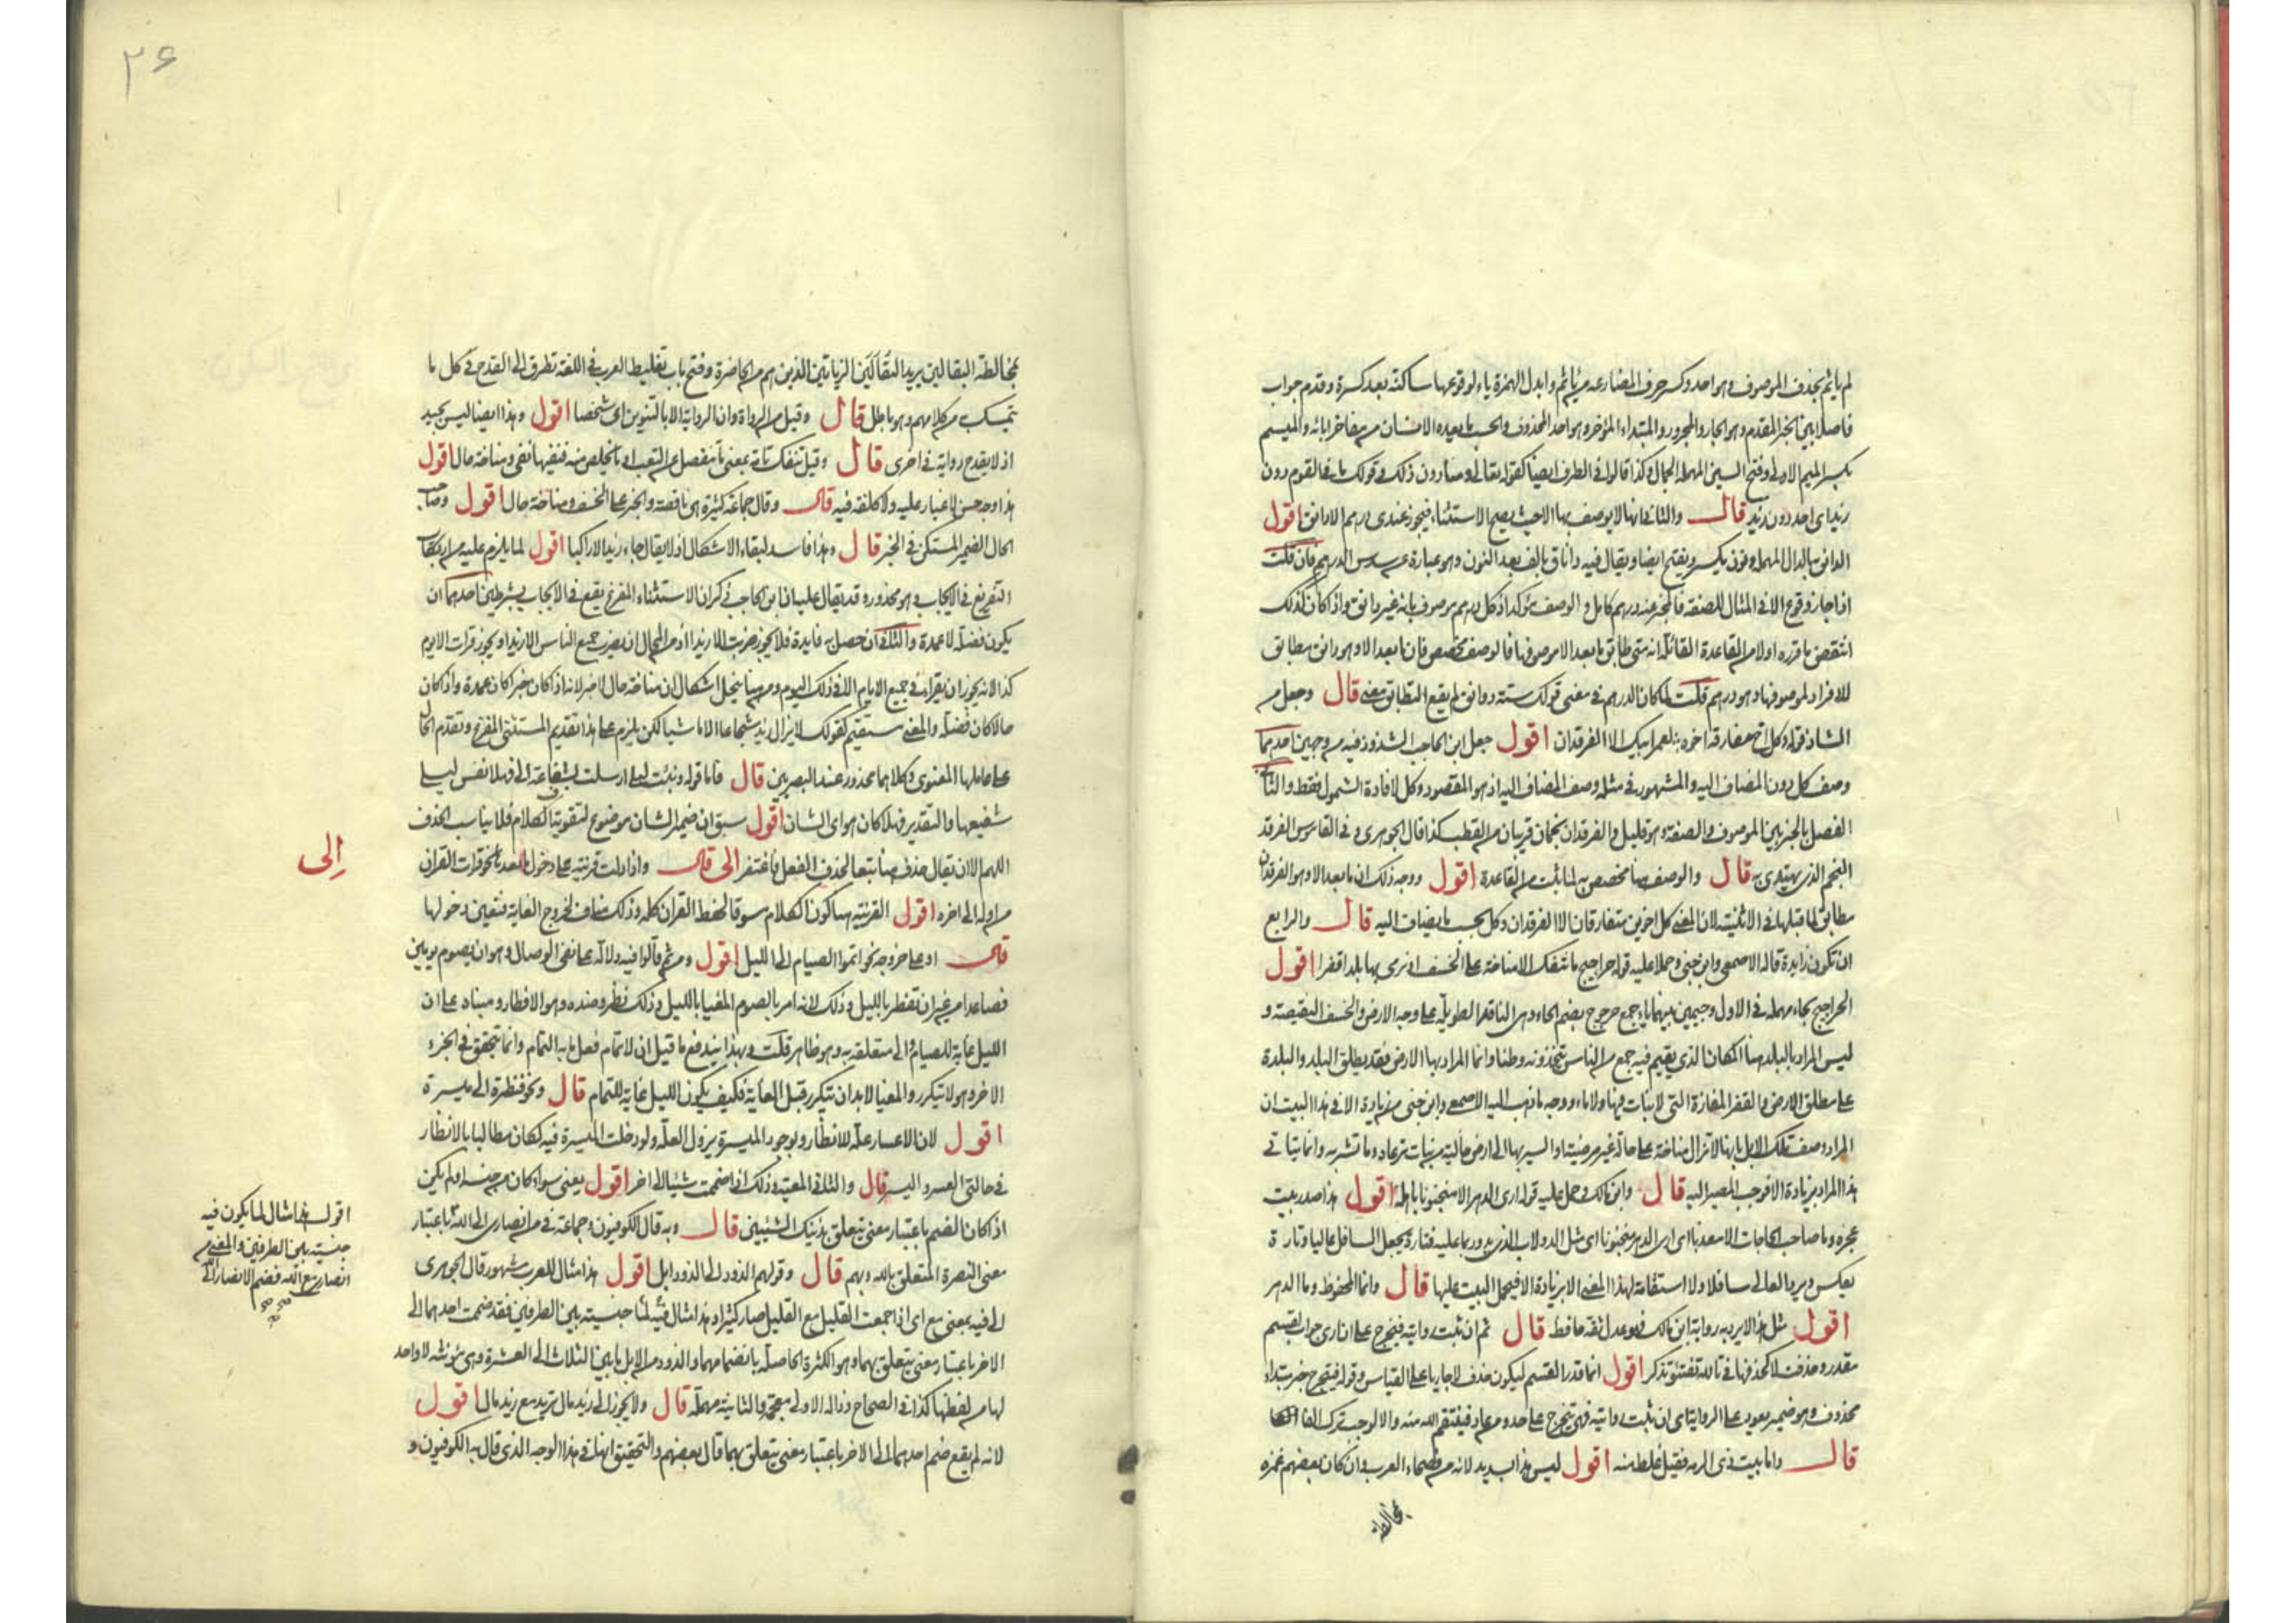 لم يايثم بحذف الموصوف وهو احد وكسر حرف المضارعه من ياثم وابدل الهمزة ياء لوقوعها ساكنة بعد كسرة وقدم جواب
فاصلا بين الخبر المقدم وهو الجار والمجرور والمبتداء المؤخر وهو احد المحذوف والحسب ما يعده الانسان من مفاخر ابائه والميسم
بكسر الميم الاولى وفتح السين المهملة الجمال وكذا قالوا في الظرف ايضا كقوله تعالى ومنا دون ذلك وقولك ما في القوم دون
زيد اي احد دون زيد قال والثاني انها لا يوصف بها الا حيث يصح الاستثناء فيجوز عندي درهم الا دانق اقول
الدانق بالدال المهملة ونون يكسر ويفتح ايضا ويقال فيه داناق بالف بعد النون وهو عبارة عن سدس الدرهم فان قلت
اذا جاز وقوع الا في المثال للصفة فالمخبر عنه درهم كامل والوصف مؤكد اذ كل درهم موصوف بانه غير دانق واذا كان كذلك
انتقض ما قرره اولا من القاعدة القائلة انه متى طابق ما بعد الا موصوفها فالوصف مخصص فان ما بعد الا وهو دانق مطابق
للافراد لموصوفها وهو درهم قلت لما كان الدرهم في معنى قولك ستة دوانق لم يقع التطابق معنى قال وجعل من
الشاذ قوله وكل اخ مفارقه اخوه لعمر ابيك الا الفرقدان اقول جعل ابن الحاجب الشذوذ فيه من وجهين احدهما
وصف كل دون المضاف اليه والمشهور في مثله وصف المضاف اليه اذ هو المقصود وكل لافادة الشمول فقط والثاني
الفصل بالخبر بين الموصوف والصفة وهو قليل والفرقدان نجمان قريبان من القطب كذا قال الجوهري وفي القاموس الفرقد
النجم الذي يهتدى به قال والوصف هنا مخصص لما ثبت من القاعدة اقول ووجه ذلك ان ما بعد الا وهو الفرقدان
مطابق لما قبلها في الاثنينية لان المعنى كل اخوين متفارقان الا الفرقدان وكل بحسب ما يضاف اليه قال والرابع
ان تكون زايدة قاله الاصمعي وابن جني وحملا عليه قوله حراجيج ما تنفك الا مناخة على الخسف او نرمي بها بلدا قفرا اقول
الحراجيج بحاء مهملة في الاول وجيمين بينهما ياء جمع حرجوج بضم الحاء وهي الناقة الطويلة على وجه الارض والخسف النقيصة و
ليس المراد بالبلد هنا المكان الذي يقيم فيه جمع من الناس يتخذونه وطنا وانما المراد بها الارض فقد يطلق البلد والبلدة
على مطلق الارض والقفر المفازة التي لا نبات فيها ولا ماء ووجه ما ذهب اليه الاصمعي وابن جني من زيادة الا في هذا البيت ان
المراد وصف تلك الابل بانها لا تزال مناخة على حالة غير مرضية او السير بها الى ارض خالية من نبات ترعاه وماء تشربه وانما يتاتى
هذا المراد بزيادة الا فوجب المصير اليه قال وابن مالك وحمل عليه قوله ارى الدهر الا منجنونا باهله اقول هذا صدر بيت
عجزه وما صاحب الحاجات الا معذبا اي ارى الدهر منجنونا اي مثل الدولاب الذي يدور بما عليه فتارة يجعل السافل عاليا وتارة
يعكس ويرد العالي سافلا ولا استقامة لهذا المعنى الا بزيادة الا فيحمل البيت عليها قال وانما المحفوظ وما الدهر
اقول مثل هذا لا يرد به رواية ابن مالك فهو عدل ثقة حافظ قال ثم ان ثبت روايته فيخرج على ان ارى جواب لقسم
مقدر وحذفت لا كحذفها في تالله تفتئو تذكر اقول انما قدر القسم ليكون حذف لا جاريا على القياس وقوله فيتخرج خبر مبتداء
محذوف وهو ضمير يعود على الرواية اي ان ثبت روايته فهي تتخرج على حد ومن عاد فينتقم الله منه والا لوجب ترك الفاء
قال واما بيت ذي الرمه فقيل غلط منه اقول ليس هذا بسديد لانه من فصحاء العرب وان كان بعضهم غمزه
بمخالطة
٢۶
بمخالطة البقالين يريد البقالين الزياتين الذين هم من الحاضرة وفتح باب تغليط العرب في اللغة تطرق الى القدح في كل ما
يتمسك من كلامهم وهو باطل قال وقيل من الرواة وان الرواية الا بالتنوين اي شخصا اقول وهذا ايضا ليس بجيد
اذ لا يقدح رواية في اخرى قال وقيل تنفك تامة بمعنى ما تنفصل عن التعب او ما تخلص منه فنفيها نفي ومناخة حال اقول
هذا وجه حسن لا غبار عليه ولا كلفة فيه قال وقال جماعة كثيرة هي ناقصة والخبر على الخسف ومناخة حال اقول وصاحب
الحال الضمير المستكن في الخبر قال وهذا فاسد لبقاء الاشكال اذ لا يقال جاء زيد الا راكبا اقول لما يلزم عليه من ارتكاب
التفريغ في الايجاب وهو محذور وقد يقال عليه ان ابن الحاجب ذكر ان الاستثناء المفرغ يقع في الايجاب بشرطين احدهما ان
يكون فضلة لا عمدة والثاني ان حصل به فايدة فلا يجوز ضربت الا زيدا اذ من المحال ان يضرب جميع الناس الا زيدا ويجوز قرات الا يوم
كذا لانه يجوز ان يقرأ في جميع الايام الا في ذلك اليوم ومن هنا ينحل اشكال ان مناخة حال لا خبر لانه اذا كان خبر كان عمدة واذا كان
حالا كان فضلة والمعنى مستقيم كقولك لا يزال زيد شجاعا الا ماشيا لكن يلزم على هذا تقديم المستثنى المفرغ وتقدم الحال
على عاملها المعنوي وكلاهما محذور عند البصريين قال فاما قوله ونبئت ليلى ارسلت بشفاعة الي فهلا نفس ليلى
شفيعها والتقدير فهلا كان هو اي الشان اقول سبق ان ضمير الشان موضوع لتقوية الكلام فلا يناسبه الحذف
اللهم الا ان يقال حذف هنا تبعا لحذف الفعل فاغتفر الى قال واذا دلت قرينة على دخول ما بعدها نحو قرات القران
من اوله الى اخره اقول القرينة هنا كون الكلام مسوقا لحفظ القران كله وذلك مناف لخروج الغاية فتعين دخولها
قال او على خروجه نحو اتموا الصيام الى الليل اقول ومن ثم قالوا فيه دلالة على نفي الوصال وهو ان يصوم يومين
فصاعدا من غير ان تفطر بالليل وذلك لانه امر بالصوم المغيا بالليل وذلك نظر وضده وهو الافطار ومبناه على ان
الليل غاية للصيام والى متعلقة به وهو ظاهر قلت وبهذا يندفع ما قيل ان الاتمام فعل ما به التمام وانما يتحقق في الجزء
الاخر وهو لا يتكرر والمغيا لا بد ان يتكرر قبل الغاية فكيف يكون الليل غاية للتمام قال ونحو فنظرة الى ميسرة
اقول لان الاعسار علة للانظار وبوجود الميسرة يزول العلة ولو دخلت الميسرة فيه لكان مطالبا بالانظار
في حالتي العسر واليسر قال والثاني المعية وذلك اذا ضممت شيئا الى اخر اقول يعني سواء كان من جنسه او لم يكن
اذا كان الضم باعتبار معنى يتعلق بذينك الشيئين قال وبه قال الكوفيون وجماعة في من انصاري الى الله باعتبار
معنى النصرة المتعلق بالله وبهم قال وقولهم الذود الى الذود ابل اقول هذا مثال للعرب مشهور قال الجوهري
الى فيه بمعنى مع اي اذا جمعت القليل مع القليل صار كثيرا وهذا مثال فيه لما جنسيته بين الطرفين فقد ضممت احدهما الى
الاخر باعتبار معنى يتعلق بهما وهو الكثرة الحاصلة بانضمامهما والذود من الابل ما بين الثلاث الى العشرة وهي مؤنثة لا واحد
لها من لفظها كذا في الصحاح وذاله الاولى معجمة والثانية مهملة قال ولا يجوز الى زيد مال تريد مع زيد مال اقول
لانه لم يقع ضم احدهما الى الاخر باعتبار معنى يتعلق بهما قال بعضهم والتحقيق انها في هذا الوجه الذي قال به الكوفيون و
الى
اقول هذا مثال لما يكون فيه
جنسيته بين الطرفين والمعنى من
انصاري مع الله فضم الانصار الى